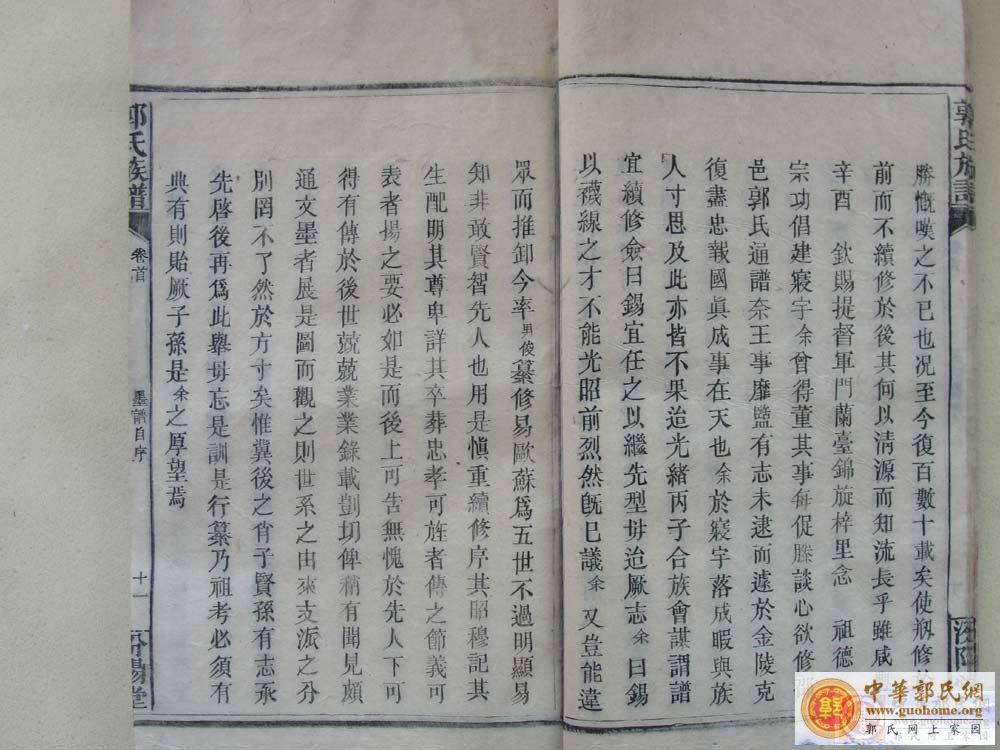 郭氏族譜
勝慨嘆之不已也况至今復百數十載矣使剏修
前而不續修於後其何以清源而知流長乎雖咸
辛酉 欽賜提督軍門蘭臺錦旋梓里念 祖德
宗功倡建寢宇余曾得董其事每促膝談心欲修
邑郭氏通譜奈王事靡盬有志未逮而遽於金陵克
復盡忠報國眞成事在天也余於寢宇落成暇與族
人寸思及此亦皆不果迨光緒丙子合族會謀謂譜
宜續修僉曰錫宜任之以繼先型毋迨厥志余曰錫
以襪線之才不能光昭前烈然旣已議余又豈能違
眾而推卸今率男俊纂修易歐蘇爲五世不過明顯易
知非敢賢智先人也用是愼重續修序其昭穆記其
生配明其尊卑詳其卒葬忠孝可旌者傳之節義可
表者揚之要必如是而後上可告無愧於先人下可
得有傳於後世兢兢業業錄載剴切俾稍有聞見頗
通文墨者展是圖而觀之則世系之由來支派之分
別罔不了然於方寸矣惟冀後之肖子賢孫有志承
先啓後再爲此舉毋忘是訓是行纂乃祖考必須有
典有則貽厥子孫是余之厚望焉
郭氏族譜
卷首
墨譜自序
十一
汾陽堂
中華郭氏網
www.guohome.org
郭氏网上家园